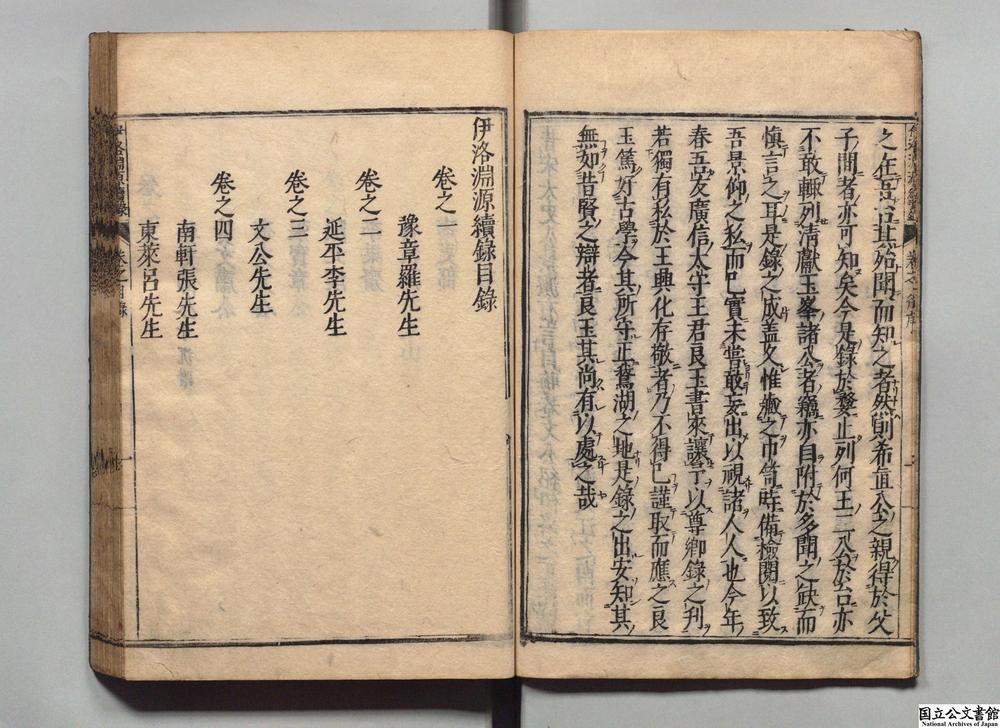 之在吾台其殆聞而知之者然則希直公之親得於父
子間者亦可知矣今是錄於婺止列何王二公於台亦
不敢輒列清獻玉峯諸公者竊亦自附於多聞之缺而
慎言之耳是錄之成蓋久惟藏之巾笥時備檢閱以致
吾景仰之私而已實未嘗敢妄出以視諸人人也今年
春吾友廣信太守王君良玉書來讓予以尊鄉錄之刊
若獨有私於王興化存敬者乃不得已謹取而應之良
玉篤好古學今其所守正鵞湖之地是錄之出安知其
無如昔賢之辯者良玉其尚有以處之哉
伊洛淵源續錄目錄
卷之一
豫章羅先生
卷之二
延平李先生
卷之三
文公先生
卷之四
南軒張先生
東萊呂先生
国立公文書館
National Archives of Japan